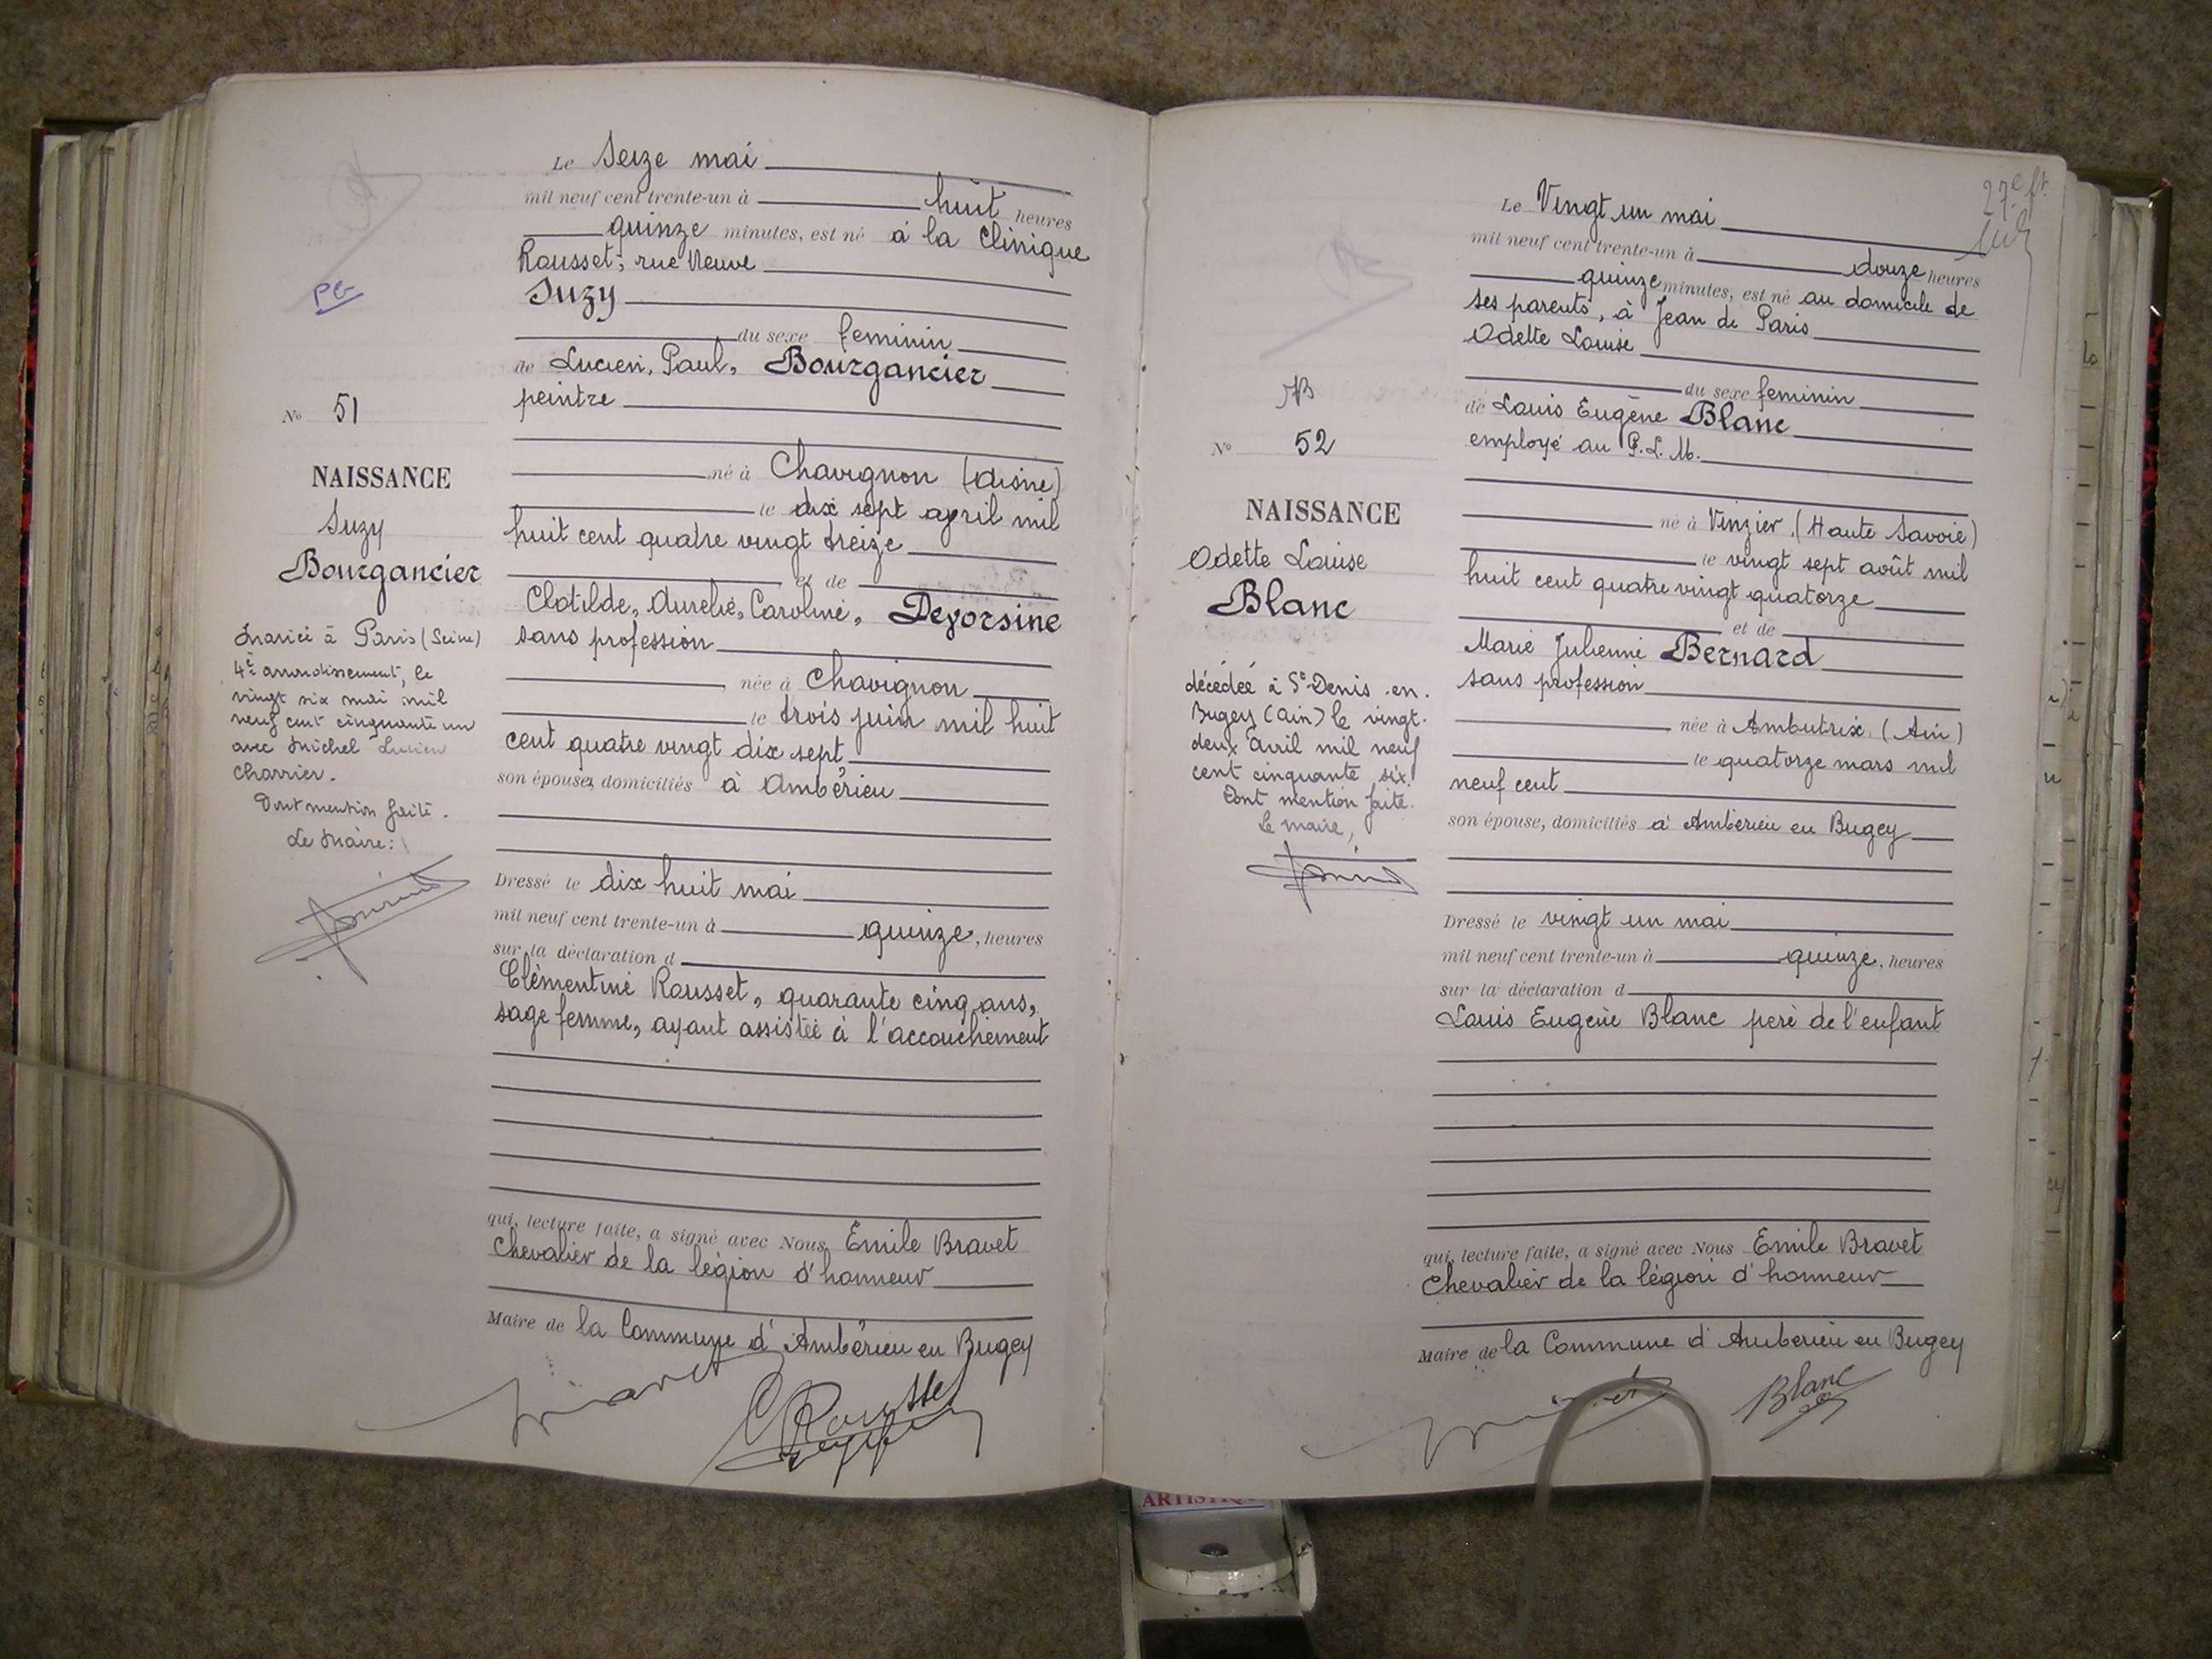 Le Seize mai
mil neuf cent trente-un à huit heures
quinze minutes, est né à la Clinique
Rousset, rue Neuve
Suzy
du sexe feminin
de Lucien, Paul, Bourgancier
peintre
né à Chavignon (Aisne)
le dix sept april mil
huit cent quatre vingt treize
et de
Clotilde, Aurelie, Caroline,
sans profession
née à Chavignon
le trois juin mil huit
cent quatre vingt dix sept
son épouse, domiciliés à Ambérieu
Dressé le dix huit mai
mil neuf cent trente-un à quinze, heures
sur la déclaration d
Clémentine Rousset, quarante cinq ans,
sage femme, ayant assistée à l'accouchement
qui, lecture faite, a signé avec Nous Emile Bravet
Chevalier de la légion d'honneur
Maire de la Commune d'Ambérieu en Bugey
Bravet
C Rousset
PG
No 51
NAISSANCE
Suzy
Bourgancier
Mariée à Paris (Seine)
4e arrondissement, le
vingt six mai mil
neuf cent cinquante un
avec Michel Lucien
Charrier.
Dont mention faite.
Le Maire:
27e ft.
Le Vingt un mai
mil neuf cent trente-un à douze heures
quinze minutes, est né au domicile de
ses parents, à Jean de Paris
Odette Louise
du sexe feminin
de Louis Eugène Blanc
employé au P.L.M.
né à Vinzier, (Haute Savoie)
le vingt sept août mil
huit cent quatre vingt quatorze
et de
Marie Julienne Bernard
sans profession
née à Ambutrix (Ain)
le quatorze mars mil
neuf cent
son épouse, domiciliés à Ambérieu en Bugey
Dressé le vingt un mai
mil neuf cent trente-un à quinze, heures
sur la déclaration d
Louis Eugène Blanc père de l'enfant
qui, lecture faite, a signé avec Nous Emile Bravet
Chevalier de la légion d'honneur
Maire de la Commune d'Ambérieu en Bugey
Blanc
No 52
NAISSANCE
Odette Louise
Blanc
décédée à St Denis en
Bugey (Ain) le vingt
deux avril mil neuf
cent cinquante six.
Dont mention faite.
Le maire,
ARTISTIQ